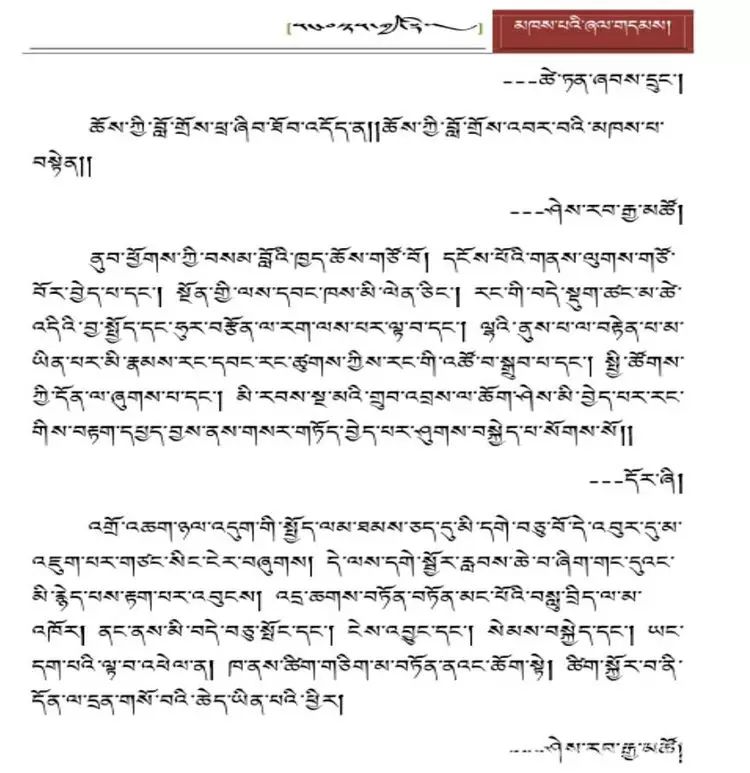 མཁས་པའི་ཞལ་གདམས།
---ཚེ་ཏན་ཞབས་དྲུང་།
ཆོས་ཀྱི་བློ་གྲོས་ཕྲ་ཞིབ་ཐོབ་འདོད་ན།།ཆོས་ཀྱི་བློ་གྲོས་འབར་བའི་མཁས་པ་
བསྟེན།།
---ཤེས་རབ་རྒྱ་མཚོ།
ནུབ་ཕྱོགས་ཀྱི་བསམ་བློའི་ཁྱད་ཆོས་གཙོ་བོ། དངོས་པོའི་གནས་ལུགས་གཙོ་
བོར་བྱེད་པ་དང་། སྔོན་གྱི་ལས་དབང་ཁས་མི་ལེན་ཅིང་། རང་གི་བདེ་སྡུག་ཚང་མ་ཚེ་
འདིའི་བྱ་སྤྱོད་དང་ཧུར་བརྩོན་ལ་རག་ལས་པར་ལྟ་བ་དང་། ལྷའི་ནུས་པ་ལ་བརྟེན་པ་མ་
ཡིན་པར་མི་རྣམས་རང་དབང་རང་ཚུགས་ཀྱིས་རང་གི་འཚོ་བ་སྒྲུབ་པ་དང་། སྤྱི་ཚོགས་
ཀྱི་དོན་ལ་ཞུགས་པ་དང་། མི་རབས་སྔ་མའི་གྲུབ་འབྲས་ལ་ཆོག་ཤེས་མི་བྱེད་པར་རང་
གིས་བརྟག་དཔྱད་བྱས་ནས་གསར་གཏོད་བྱེད་པར་ཤུགས་བསྐྱེད་པ་སོགས་སོ།།
---དོར་ཞི།
འགྲོ་འཆག་ཉལ་འདུག་གི་སྤྱོད་ལམ་ཐམས་ཅད་དུ་མི་དགེ་བཅུ་བོ་དེ་འབུར་དུ་མ་
འཇུག་པར་གཙང་སིང་ངེར་བཞུགས། དེ་ལས་དགེ་སྦྱོར་རླབས་ཆེ་བ་ཞིག་གང་དུའང་
མི་རྙེད་པས་རྟག་པར་འབུངས། འདྲ་ཆགས་བཏོན་བཏོན་མང་པོའི་བསླུ་བྲིད་ལ་མ་
འཁོར། ནང་ནས་མི་བདེ་བཅུ་སྤོང་དང་། ངེས་འབྱུང་དང་། སེམས་བསྐྱེད་དང་། ཡང་
དག་པའི་ལྟ་བ་འཕེལ་ན། ཁ་ནས་ཚིག་གཅིག་མ་བཏོན་ནའང་ཆོག་སྟེ། ཚིག་སྐྱོར་བ་ནི་
དོན་ལ་དྲན་གསོ་བའི་ཆེད་ཡིན་པའི་ཕྱིར།
---ཤེས་རབ་རྒྱ་མཚོ།